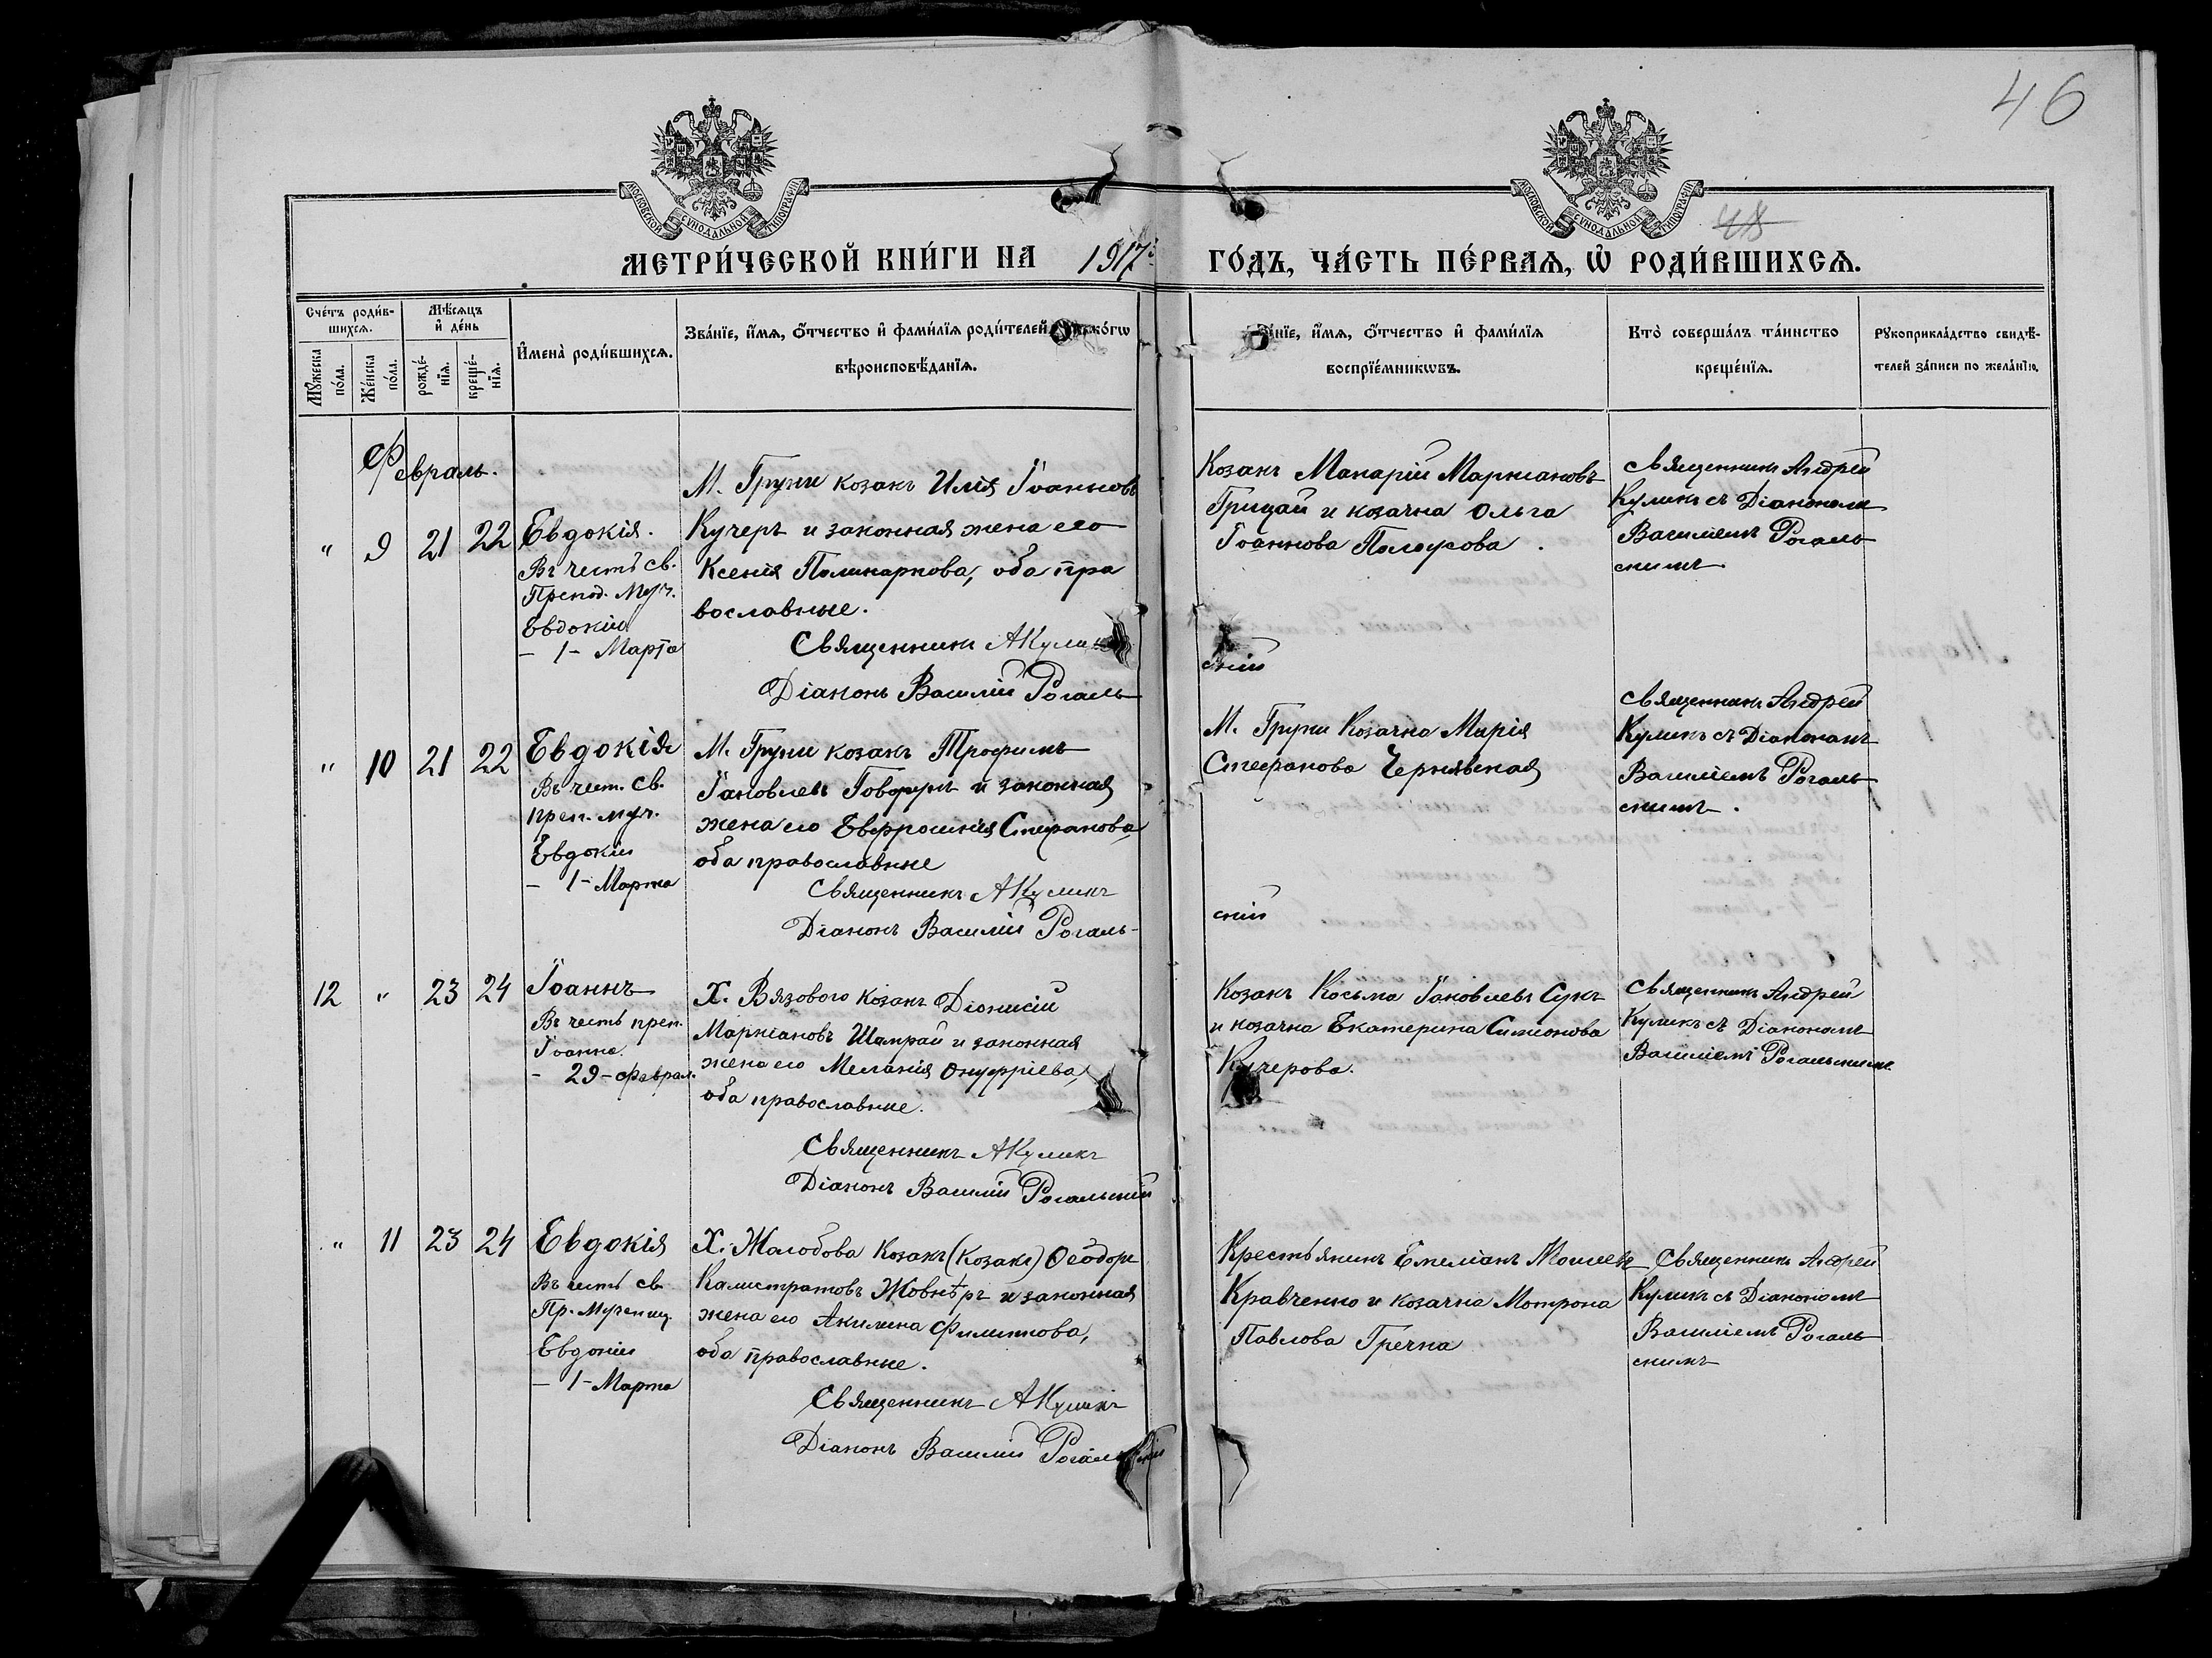 46
МОСКОВСКОЙ СУНОДАЛЬНОЙ ТИПОГРАФІИ
МОСКОВСКОЙ СУНОДАЛЬНОЙ ТИПОГРАФІИ
48
МЕТРИ́ЧЕСКОЙ КНИ́ГИ НА 1917 й
ГО́ДЪ, ЧА́СТЬ ПЕ́РВАѦ, Ѡ҆ РОДИ́ВШИХСѦ.
Сче́тъ роди́в-
шихсѧ.
Мꙋжеска по́ла.
Же́нска по́ла.
Мѣ́сѧцъ
и҆ де́нь
рожде́-
нїѧ.
креще́-
нїѧ.
И҆мена̀ роди́вшихсѧ.
Зва́нїе, и҆́мѧ, ѻ҆́тчество и҆ фами́лїѧ роди́телей,
вѣроисповѣ́данїѧ.
и҆́мѧ, ѻ҆́тчество и҆ фами́лїѧ
воспрїе́мникѡвъ.
Кто̀ соверша́лъ та́инство
креще́нїѧ.
Рꙋкоприкла́дство свидѣ́-
телей за́писи по жела́нїю.
Февраль.
" 9 21 22
Евдокія.
Въ честь св.
Препод. Муч.
Евдокіи
- 1 - Марта
М. Груни козакъ Илія Іоанновъ
Кучеръ и законная жена его
Ксенія Поликарпова, оба пра
вославные.
Священникъ АКуликъ
Діаконъ Василій Рогаль
скій
Козакъ Макарій Маркіановъ
Грицай и козачка Ольга
Іоаннова Полоусова.
Священникъ Андрей
Куликъ съ Діакономъ
Василіемъ Рогаль
скимъ
" 10 21 22
Евдокія
Въ чест. св.
преп. муч.
Евдокіи
- 1 - Марта
М. Груни козакъ Трофимъ
Іаковлевъ Говорунъ и законная
жена его Евфросинія Стефанова,
оба православные
Священникъ АКуликъ
Діаконъ Василій Рогаль-
скій
М. Груни Козачка Марія
Стефанова Чернявская
Священникъ Андрей
Куликъ съ Діакономъ
Василіемъ Рогаль
скимъ.
12 " 23 24
Іоаннъ
Въ честь преп.
Іоанна.
- 29 - феврал.
Х. Вязового козакъ Діонисій
Маркіановъ Шамрай и законная
жена его Меланія Онуфріева,
оба православные.
Священникъ АКуликъ
Діаконъ Василій Рогальскій
Козакъ Косьма Іаковлевъ Сукъ
и козачка Екатерина Симеонова
Кучерова.
Священникъ Андрей
Куликъ съ Діакономъ
Василіемъ Рогальскимъ
" 11 23 24
Евдокія
Въ честь св.
Пр. Мучениц.
Евдокіи
- 1 - Марта
Х. Жолобова Козакъ (Козакъ) Ѳеодоръ
Калистратовъ Жовнѣръ и законная
жена его Акилина Филиппова,
оба православные.
Священникъ АКуликъ
Діаконъ Василій Рогальскій
Крестьянинъ Емеліанъ Моисеевъ
Кравченко и козачка Мотрона
Павлова Гречка
Священникъ Андрей
Куликъ съ Діакономъ
Василіемъ Рогаль
скимъ